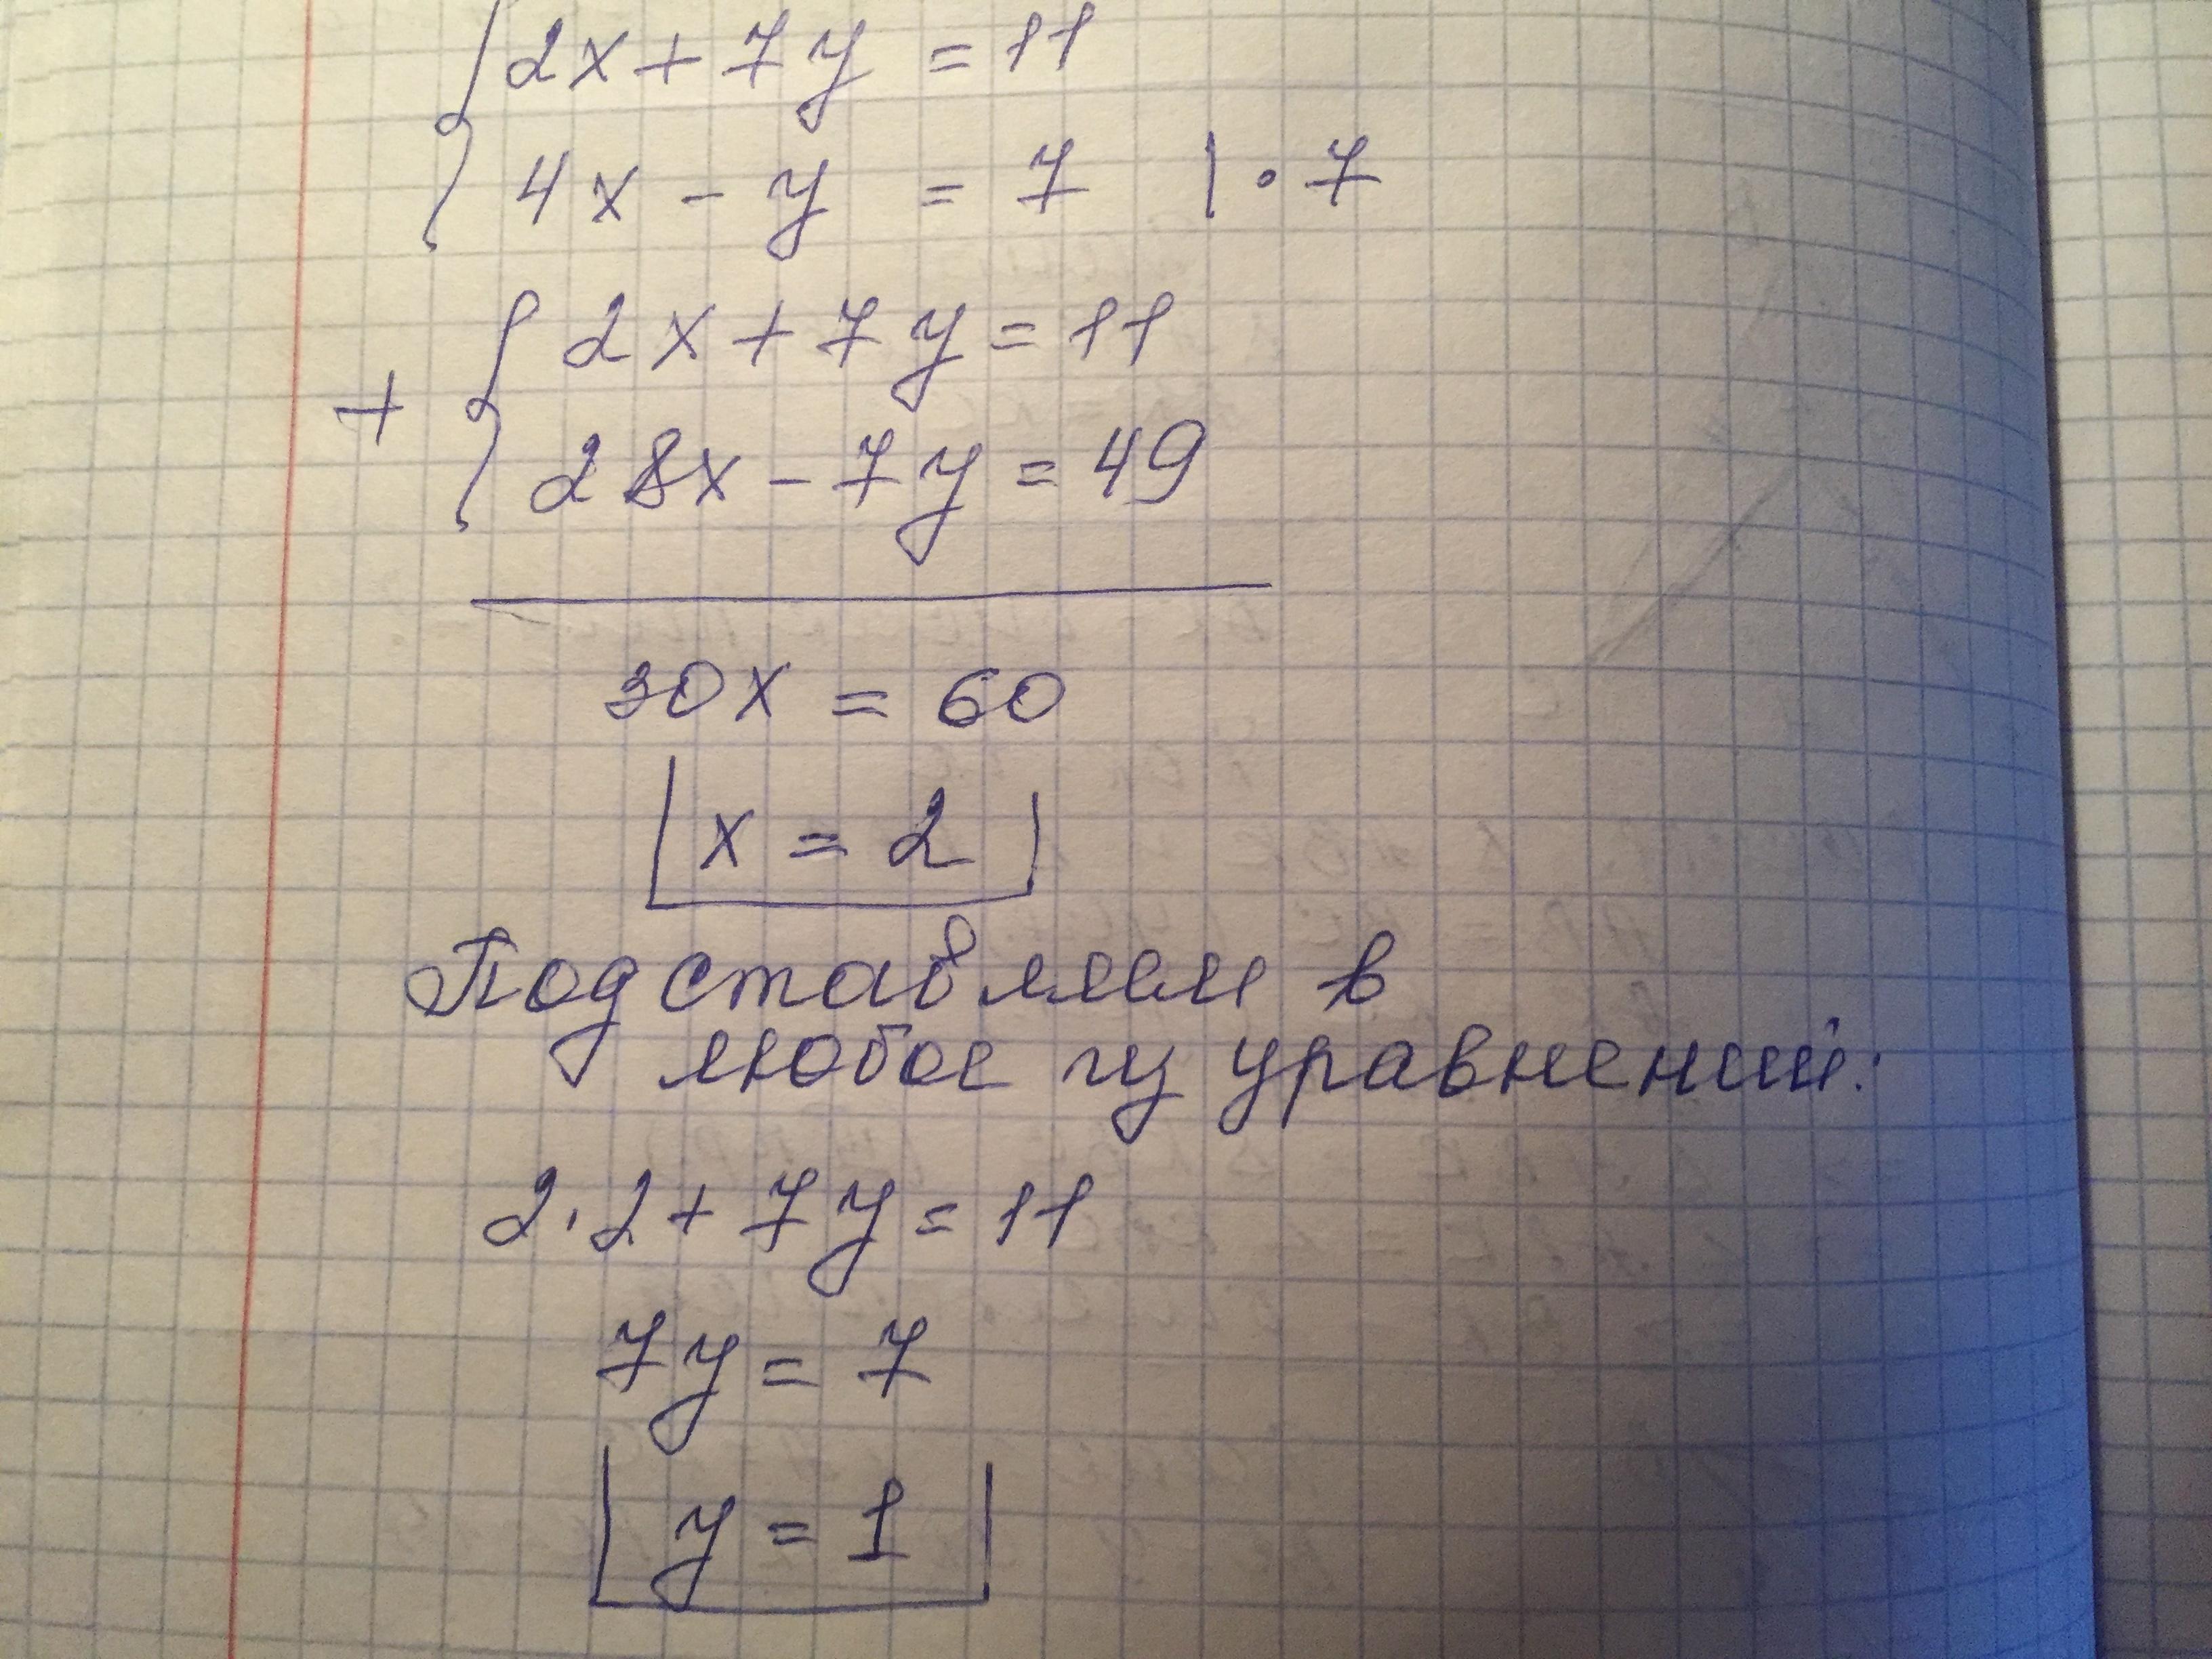 2x + 7y = 11
4x - y = 7 | • 7
2x + 7y = 11
+
28x - 7y = 49
30x = 60
x = 2
Подставляем в
любое из уравнений:
2·2 + 7y = 11
7y = 7
y = 1